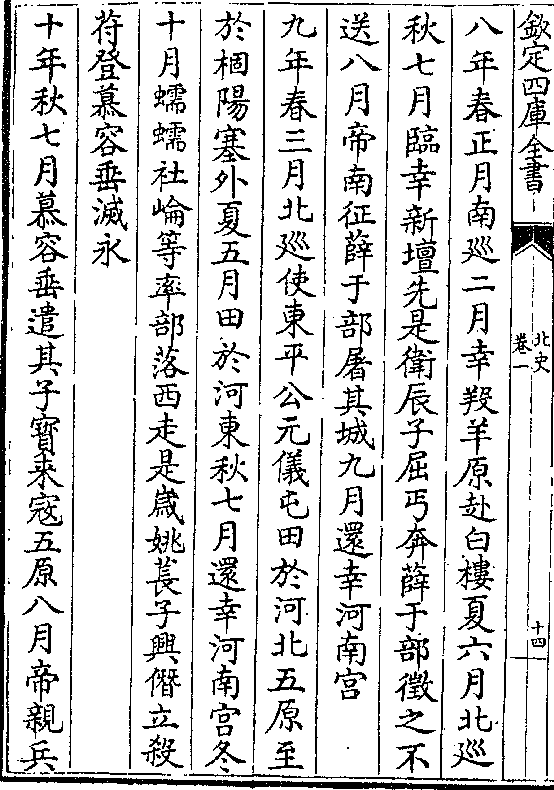 欽定四庫全書
北史
卷一
十四
八年春正月南廵二月幸羖羊原赴白樓夏六月北廵
秋七月臨幸新壇先是衛辰子屈丐奔薛于部徵之不
送八月帝南征薛于部屠其城九月還幸河南宫
九年春三月北廵使東平公元儀屯田於河北五原至
於棝陽塞外夏五月田於河東秋七月還幸河南宫冬
十月蠕蠕社崘等率部落西走是歲姚萇子興僭立殺
苻登慕容垂滅永
十年秋七月慕容垂遣其子寶来寇五原八月帝親兵